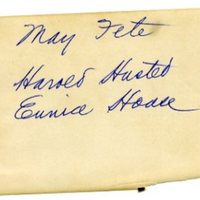 May Fete
Harold Husted
Eunice Hoase